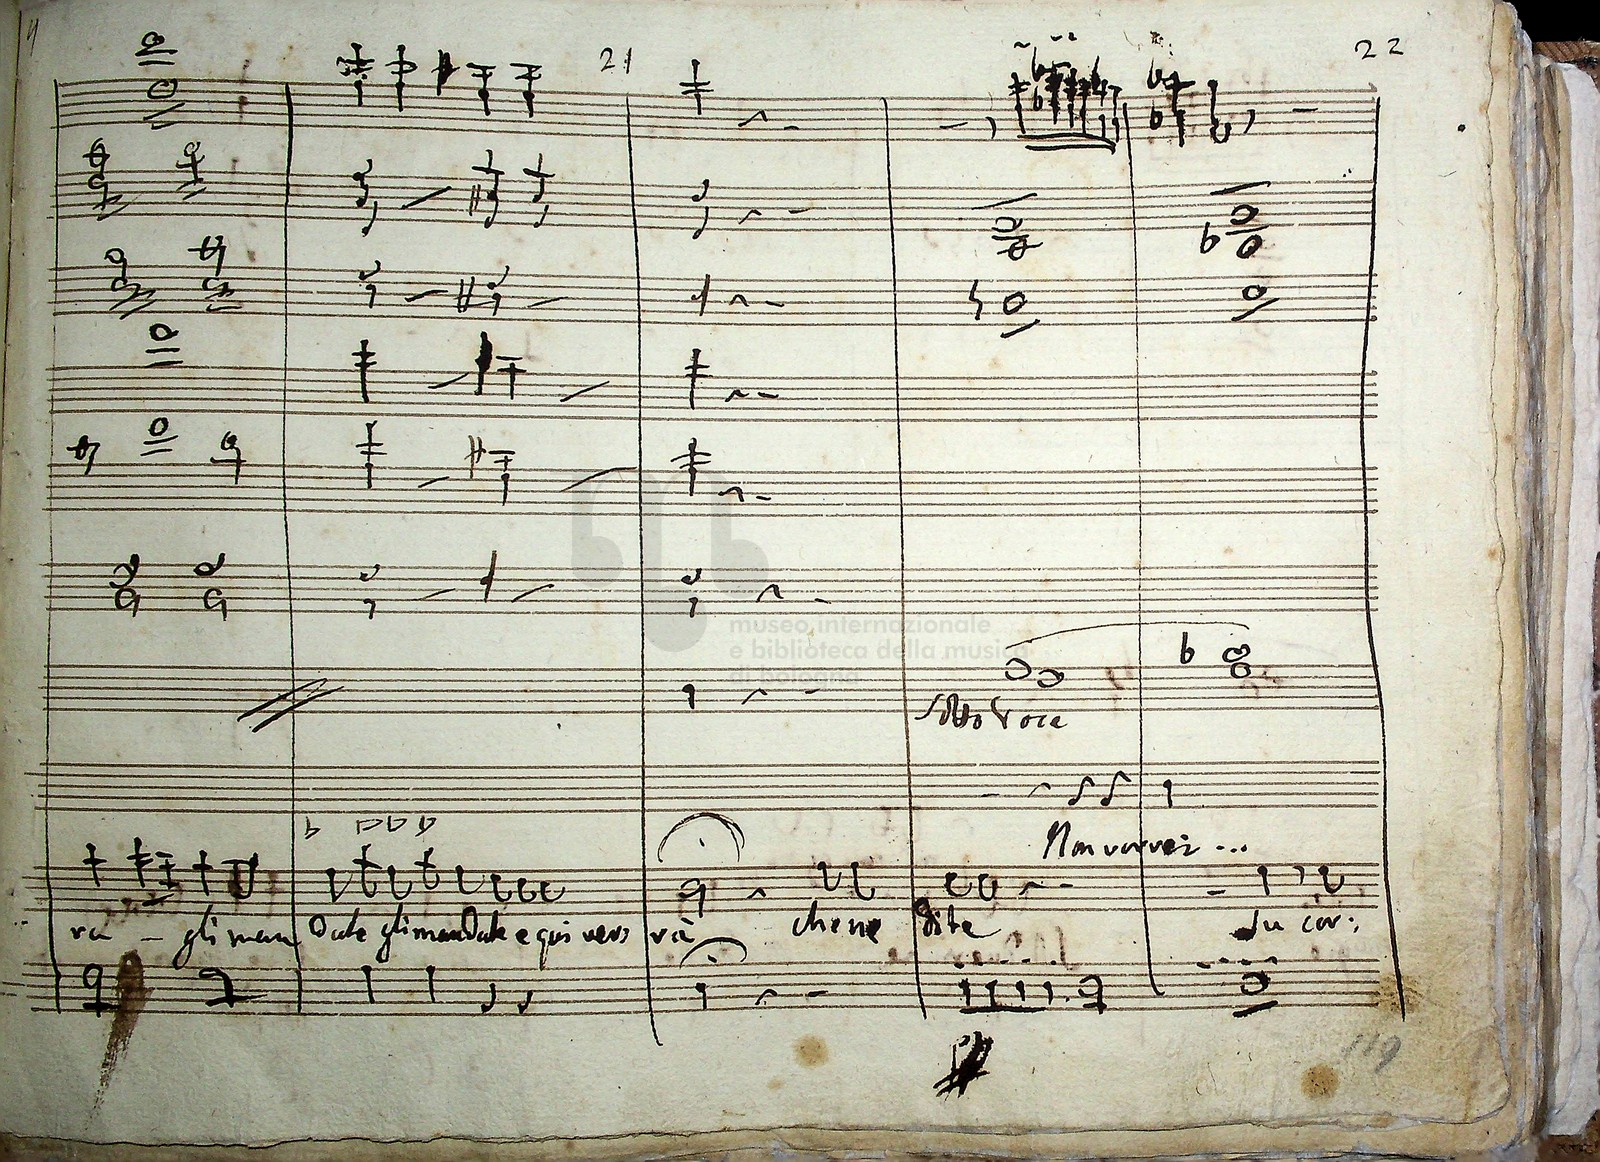 21
22
museo internazionale
e biblioteca della musica
di bologna
Sotto Voce
Non vorrei ...
ra - gli man date gli mandate e qui verrà che ne dite
Su cor:
119